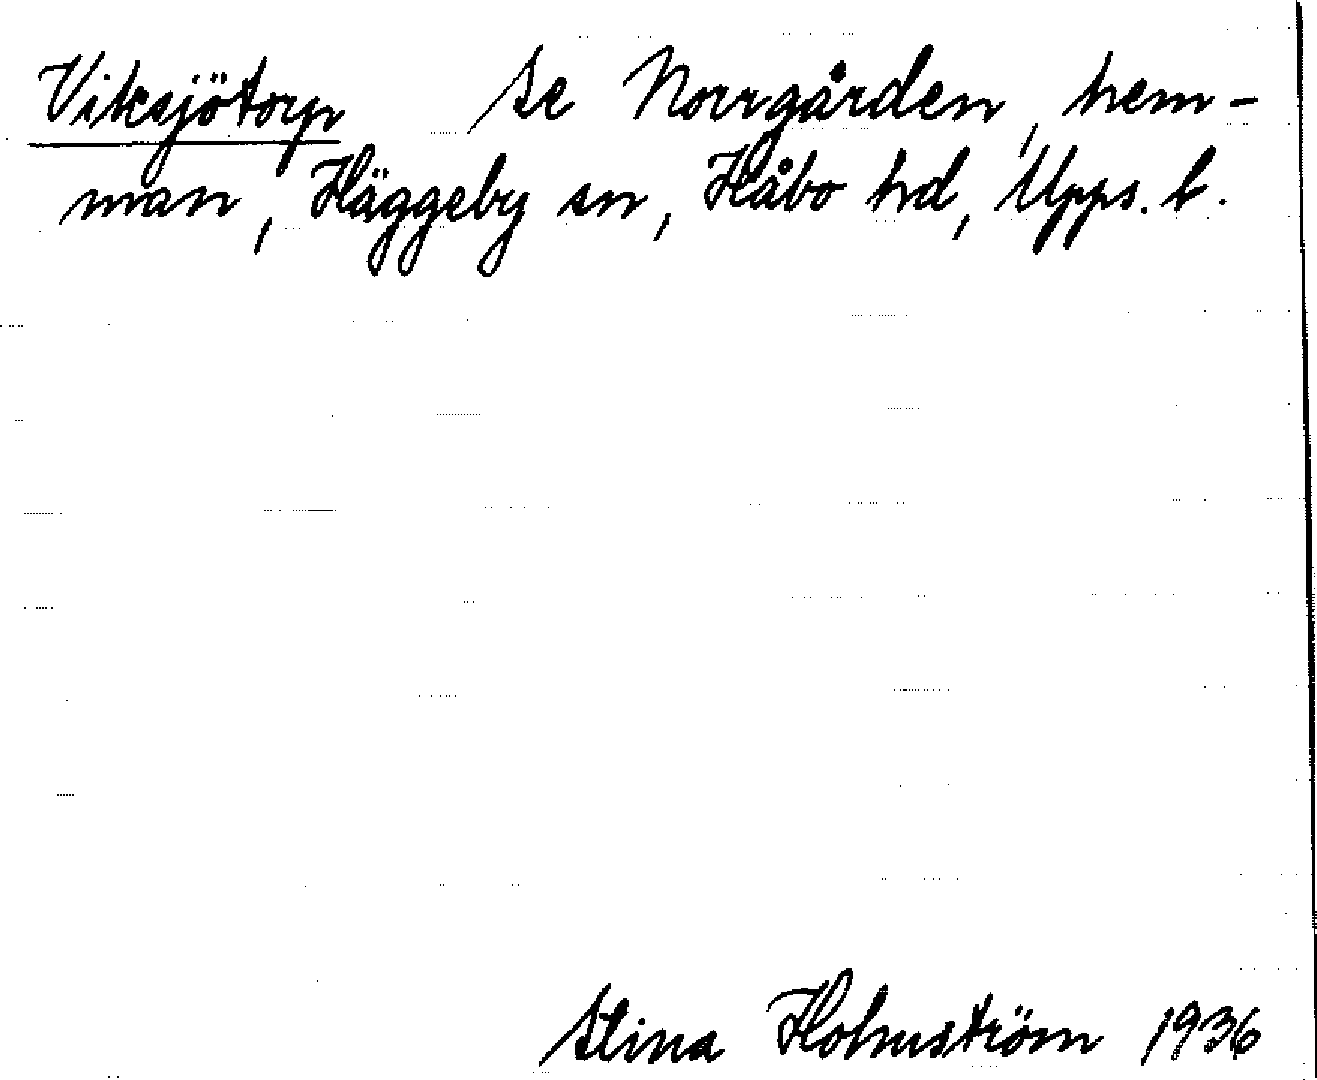 Viksjötorp se Norrgården, hem-
man, Häggeby sn, Håbo hd, Upps. l.
Stina Holmström 1936